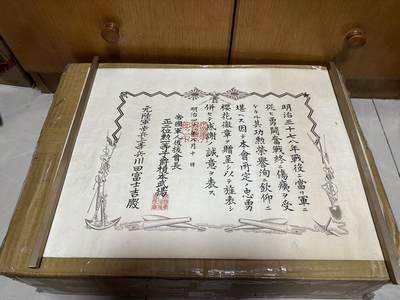 明治三十七八年戰役ニ當リ軍ニ
從ヒ勇鬪奮戰終ニ傷痍ヲ受
ケラル其功勲榮譽洵ニ欽仰ニ
堪ヘス因テ本會所定ノ忠勇
櫻花徽章ヲ贈呈シ以テ旌表シ
併セテ感謝ノ誠意ヲ表ス
明治 年 月十日
帝國軍人後援會長
正二位勲一等子爵榎本武揚
元陸軍歩兵上等兵川田富士吉殿